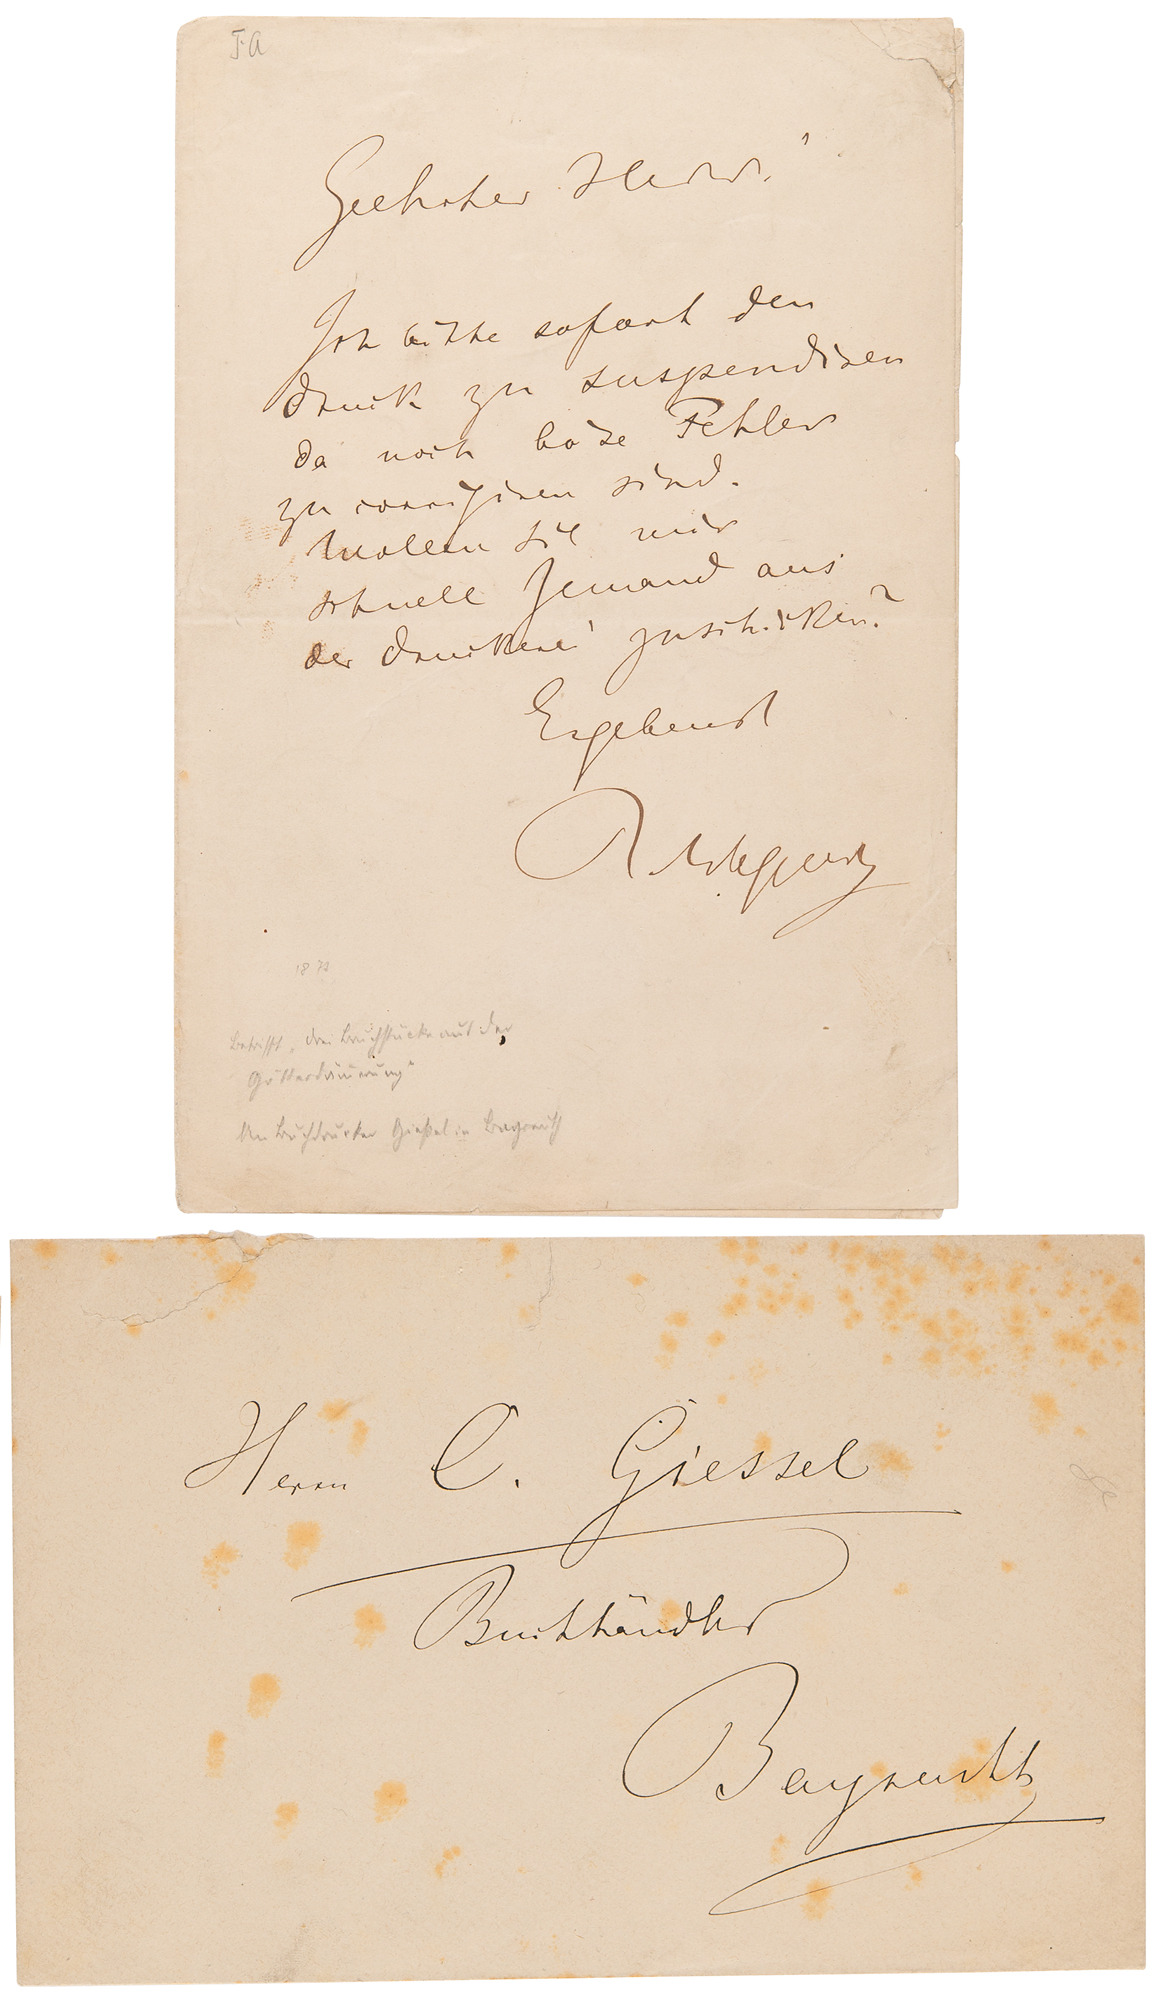 T. A
Geehrter Herr!
Ich bitte sofort den
Druck zu suspendiren
da noch böse Fehler
zu corrigiren sind.
Wollen Sie mir
schnell Jemand aus
der Druckerei zuschicken?
Ergebenst
R. Wagner
Betrifft „drei Bruchstücke aus der
Götterdämmerung“
An Buchdrucker Gießel in Bayreuth
Herrn C. Giessel
Buchhändler
Bayreuth